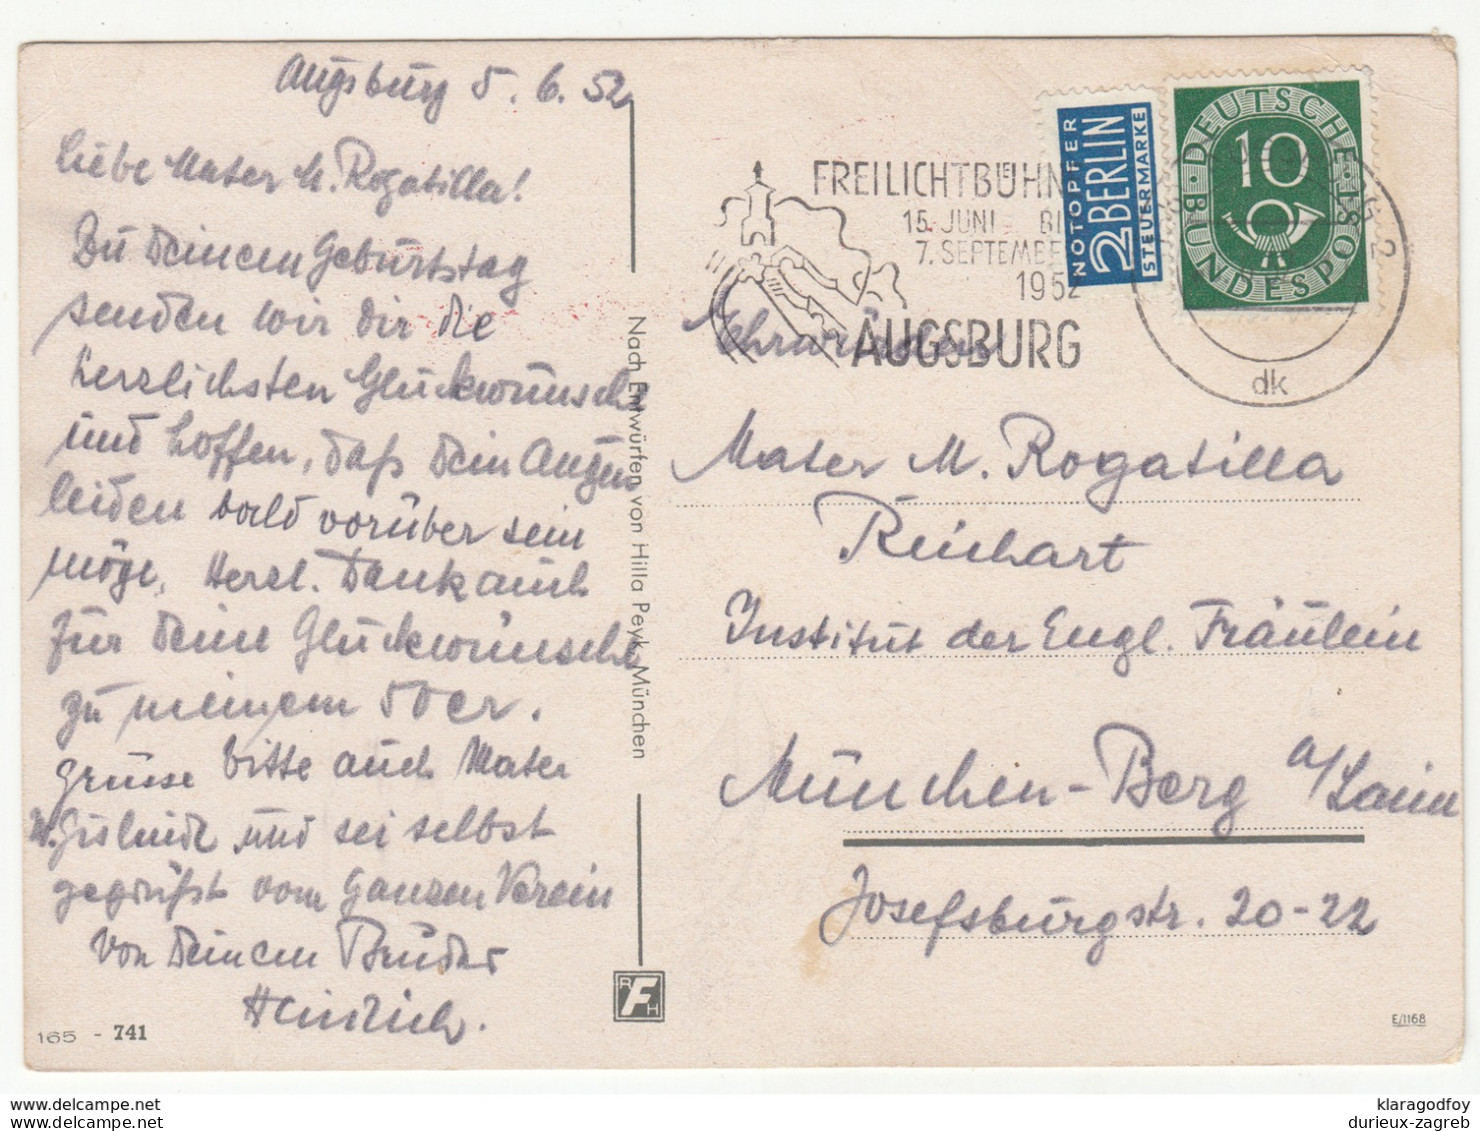 Augsburg 5. 6. 52
Liebe Mater M. Rogatilla!
Zu Deinem Geburtstag
senden wir dir die
herzlichsten Glückwünsche
und hoffen, daß Dein Augen
leiden bald vorüber sein
möge. Herzl. Dank auch
für Deine Glückwünsche
zu meinem 50er.
Grüsse bitte auch Mater
und sei selbst
gegrüßt vom ganzen Verein
von Deinem Bruder
Heinrich.
165 - 741
Nach Entwürfen von Hilla Peyk, München
RFH
FREILICHTBÜHN
15. JUNI BI
7. SEPTEMBE
1952
AUGSBURG
NOTOPFER
2 BERLIN
STEUERMARKE
DEUTSCHE
BUNDESPOST
10
2
dk
Ehrwürden
Mater M. Rogatilla
Reichart
Institut der Engl. Fräulein
München-Berg a/Laim
Josefsburgstr. 20-22
E/1168
www.delcampe.net
www.delcampe.net
klaragodfoy
durieux-zagreb